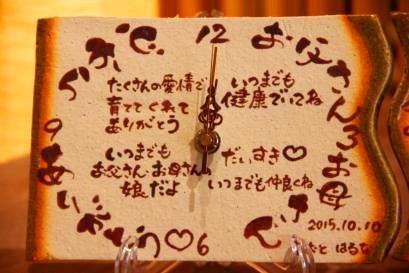 12
お父さん
3
お母さん
6
ありがとう♡
9
たくさんの愛情で
育ててくれて
ありがとう
いつまでも
健康でいてね
いつまでも
お父さんお母さん
娘だよ
だいすき♡
いつまでも仲良くね
2015.10.10
はるな